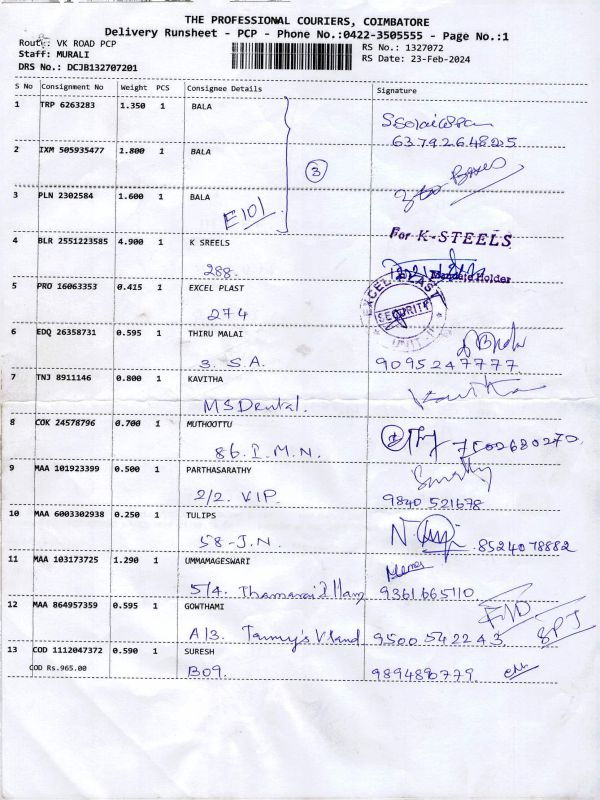 THE PROFESSIONAL COURIERS, COIMBATORE
Delivery Runsheet - PCP - Phone No.:0422-3505555 - Page No.:1
Route: VK ROAD PCP
RS No.: 1327072
Staff: MURALI
RS Date: 23-Feb-2024
DRS No.: DCJB132707201
S No Consignment No Weight PCS Consignee Details Signature
1 TRP 6263283 1.350 1 BALA
6379264825
2 IXM 505935477 1.800 1 BALA
3
3 PLN 2302584 1.600 1 BALA
E101
4 BLR 2551223585 4.900 1 K SREELS For K-STEELS
288
5 PRO 16063353 0.415 1 EXCEL PLAST EXCEL PLAST
274 SECURITY
6 EDQ 26358731 0.595 1 THIRU MALAI
3. S.A. 9095247777
7 TNJ 8911146 0.800 1 KAVITHA Kavitha
MS Dental.
8 COK 24578796 0.700 1 MUTHOOTTU
86. P.M.N. 7502680270
9 MAA 101923399 0.500 1 PARTHASARATHY
2/2. VIP. 9840 521678
10 MAA 6003302938 0.250 1 TULIPS
58-J.N. 8524078882
11 MAA 103173725 1.290 1 UMMAMAGESWARI
5/4. Thamarai Illam 9361665110
12 MAA 864957359 0.595 1 GOWTHAMI
A13. 9500 542243
13 COD 1112047372 0.590 1 SURESH
COD Rs.965.00 B09. 9894890779